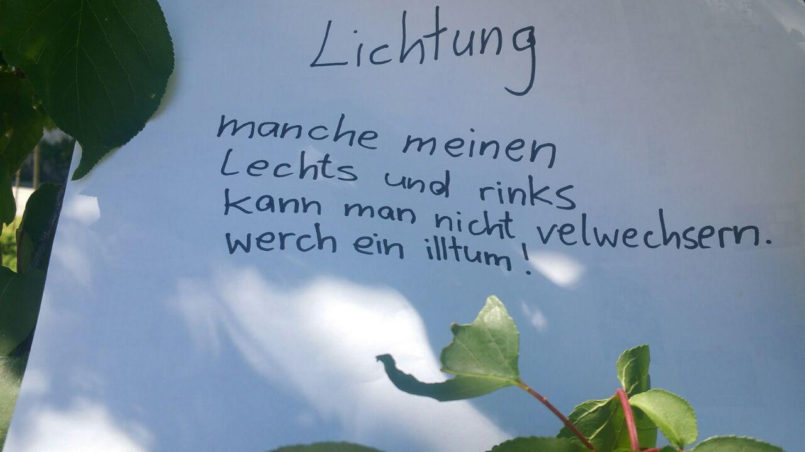 Lichtung
manche meinen
Lechts und rinks
kann man nicht velwechsern.
werch ein illtum!